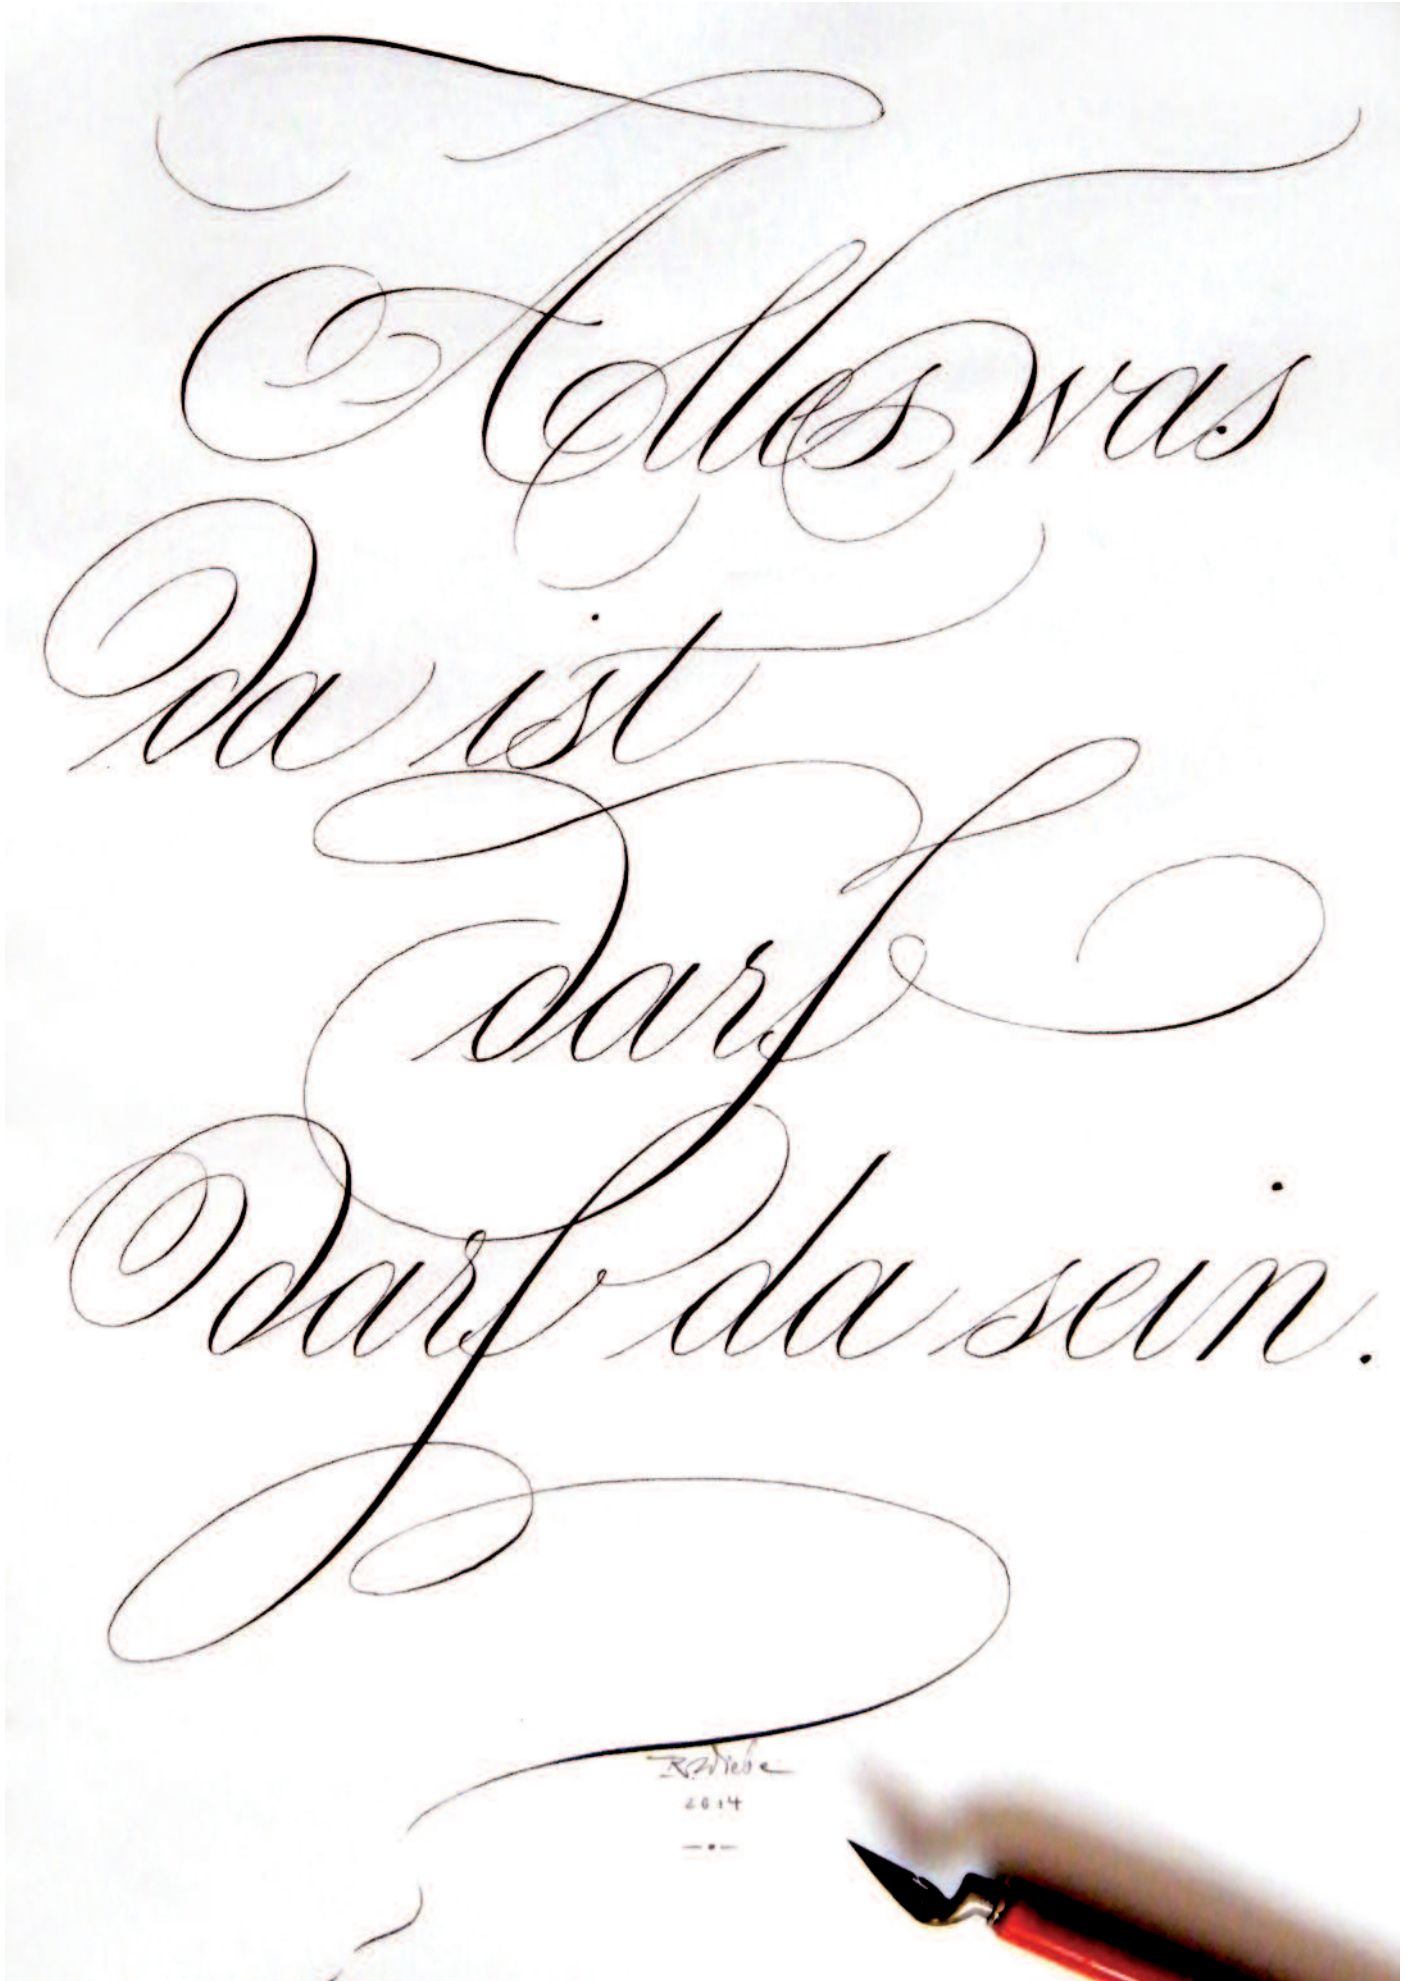 Alles was
da ist
darf
darf da sein.
R. Wiebe
2014